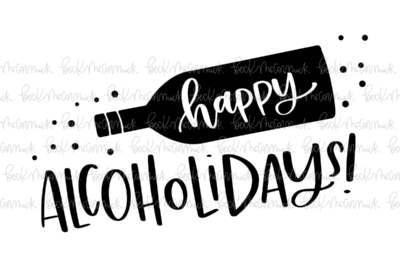 happy
ALCOHOLiDAYS!